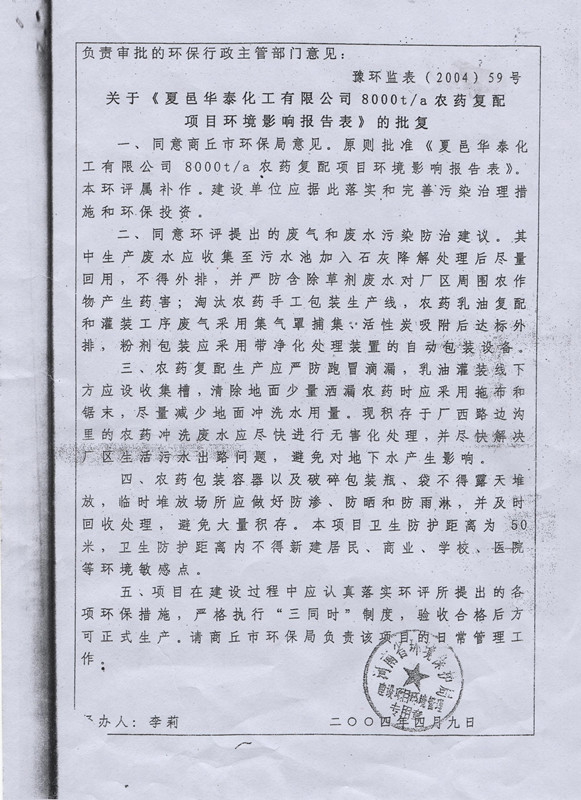 负责审批的环保行政主管部门意见：
豫环监表（2004）59号
关于《夏邑华泰化工有限公司8000t/a农药复配
项目环境影响报告表》的批复
一、同意商丘市环保局意见。原则批准《夏邑华泰化
工有限公司8000t/a农药复配项目环境影响报告表》。
本环评属补作。建设单位应据此落实和完善污染治理措
施和环保投资。
二、同意环评提出的废气和废水污染防治建议。其
中生产废水应收集至污水池加入石灰降解处理后尽量
回用，不得外排，并严防含除草剂废水对厂区周围农作
物产生药害；淘汰农药手工包装生产线，农药乳油复配
和灌装工序废气采用集气罩捕集、活性炭吸附后达标外
排，粉剂包装应采用带净化处理装置的自动包装设备。
三、农药复配生产应严防跑冒滴漏，乳油灌装线下
方应设收集槽，清除地面少量洒漏农药时应采用拖布和
锯末，尽量减少地面冲洗水用量。现积存于厂西路边沟
里的农药冲洗废水应尽快进行无害化处理，并尽快解决
厂区生活污水出路问题，避免对地下水产生影响。
四、农药包装容器以及破碎包装瓶、袋不得露天堆
放，临时堆放场所应做好防渗、防晒和防雨淋，并及时
回收处理，避免大量积存。本项目卫生防护距离为50
米，卫生防护距离内不得新建居民、商业、学校、医院
等环境敏感点。
五、项目在建设过程中应认真落实环评所提出的各
项环保措施，严格执行“三同时”制度，验收合格后方
可正式生产。请商丘市环保局负责该项目的日常管理工
作。
河南省环境保护局
建设项目环境管理
专用章
办人：李莉
二〇〇四年四月九日